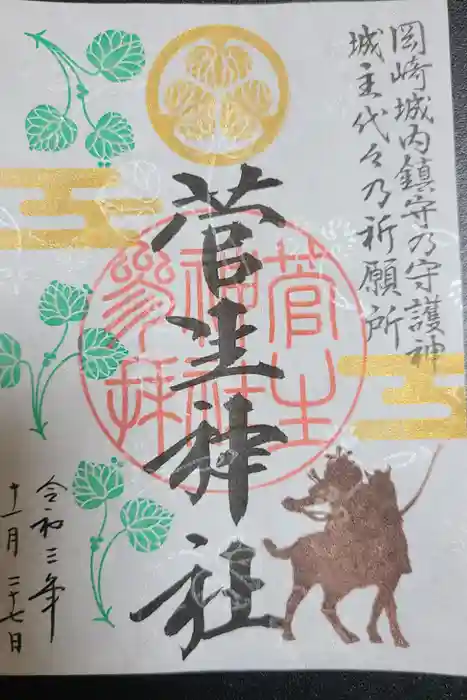 岡崎城内鎮守乃守護神
城主代々乃祈願所
菅生神社
菅生
神社
参拝
令和三年
十一月二十七日